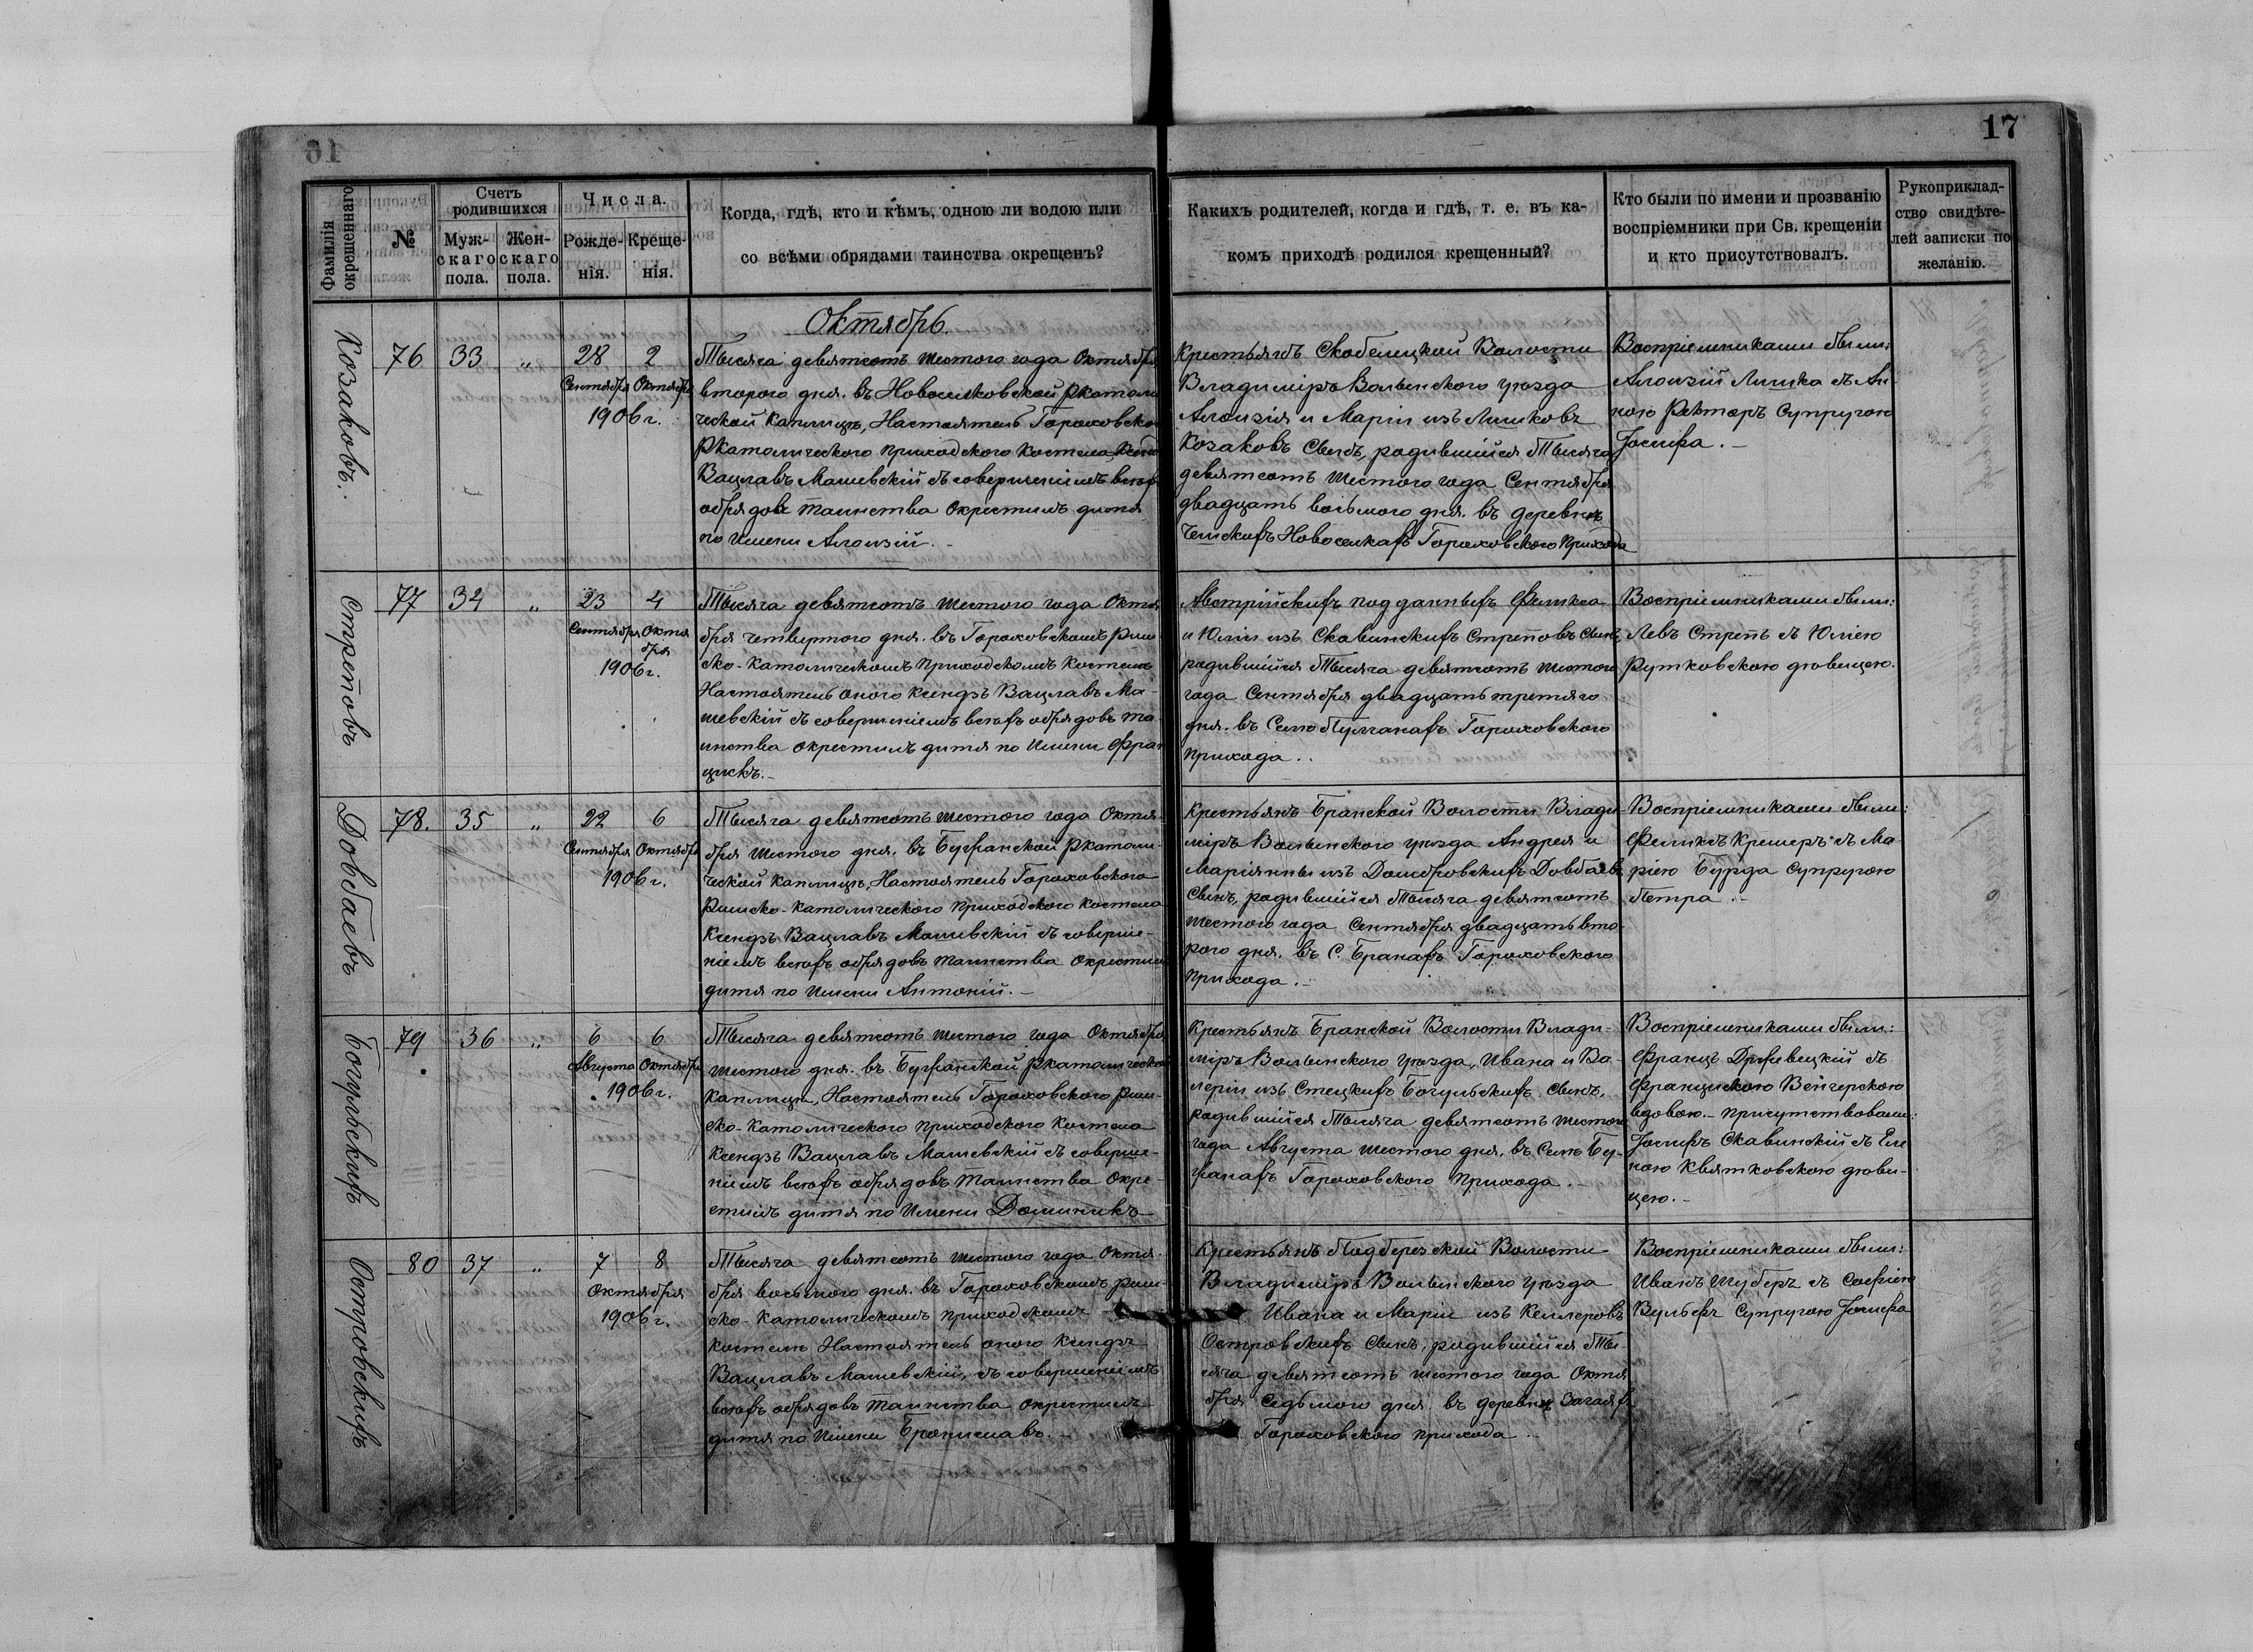 17
Фамилія окрещеннаго
№
Счетъ родившихся
Муж-
скаго
пола.
Жен-
скаго
пола.
Числа.
Рожде-
нія.
Креще-
нія.
Когда, гдѣ, кто и кѣмъ, одною ли водою или
со всѣми обрядами таинства окрещенъ?
Какихъ родителей, когда и гдѣ, т. е. въ ка-
комъ приходѣ родился крещенный?
Кто были по имени и прозванію
воспріемники при Св. крещеніи
и кто присутствовалъ.
Рукоприклад-
ство свидѣте-
лей записки по
желанію.
Октябрь.
Козаковъ.
76 33 „ 28 2
Сентября Октября
1906 г.
Тысяча девятсотъ шестого года Октября
второго дня. въ Новоселковской Ркатоли
ческой каплицѣ, Настоятель Гороховского
Ркатолического приходского костела
Вацлавъ Машевскій съ совершеніемъ всѣхъ
обрядовъ таинства окрестилъ дитя
по имени Алоизій. –
Крестьянъ Скобелецкой Волости
Владиміръ Волынского уѣзда
Алоизія и Маріи изъ Личковъ
Козаковъ Сынъ, родившійся Тысяча
девятсотъ шестого года Сентября
двадцать восьмого дня. въ деревнѣ
Чешскихъ Новоселкахъ Гороховского Прихода
Воспріемниками были:
Алоизій Личка съ Ан-
ною Ректоръ Супругою
Іосифа. –
Стреповъ
77 34 „ 23 4
Сентября Октя
бря
1906 г.
Тысяча девятсотъ шестого года Октя
бря четвертого дня. въ Гороховскомъ Рим
ско-католическомъ приходскомъ костелѣ
Настоятель оного Ксендзъ Вацлавъ Ма-
шевскій съ совершеніемъ всѣхъ обрядовъ та
инства окрестилъ дитя по имени Фран
цискъ. –
Австрійскихъ подданныхъ Феликса
и Юліи изъ Скавинскихъ Стреповъ Сынъ,
родившійся Тысяча девятсотъ шестого
года Сентября двадцать третяго
дня. въ Селѣ Пулганахъ Гороховского
прихода. .
Воспріемниками были:
Левъ Стрепъ съ Юліею
Рутковскою дѣвицею.
Довбаевъ
78. 35 „ 22 6
Сентября Октября
1906 г.
Тысяча девятсотъ шестого года Октя-
бря шестого дня. въ Бужанской Ркатоли-
ческой каплицѣ, Настоятель Гороховского
Римско-католического приходского костела
Ксендзъ Вацлавъ Машевскій съ соверше-
ніемъ всѣхъ обрядовъ таинства окрестилъ
дитя по имени Антоній. –
Крестьянъ Бранской Волости Влади
міръ Волынского уѣзда Андрея и
Маріянны изъ Домбровскихъ Довбаевъ
Сынъ, родившійся Тысяча девятсотъ
шестого года Сентября двадцать вто-
рого дня. въ С. Бранахъ Гороховского
прихода. –
Воспріемниками были:
Феликсъ Кремеръ съ Ма
ріею Бурда Супругою
Петра. –
Богульскихъ
79 36 „ 6 6
Августа Октября
1906 г.
Тысяча девятсотъ шестого года Октября
шестого дня. въ Бужанской Ркатолической
каплицѣ, Настоятель Гороховского Рим-
ско-католического приходского костела
Ксендзъ Вацлавъ Машевскій съ соверше-
ніемъ всѣхъ обрядовъ таинства окре-
стилъ дитя по имени Доминикъ
Крестьянъ Бранской Волости Влади-
міръ Волынского уѣзда, Ивана и Ва-
леріи изъ Стецкихъ Богульскихъ Сынъ,
родившійся Тысяча девятсотъ шестого
года Августа шестого дня, въ Селѣ Бу-
жанахъ Гороховского прихода. –
Воспріемниками были:
Францъ Држевецкій съ
Францискою Венгерскою
вдовою. – Присутствовали:
Іосифъ Скавинскій съ Еле
ною Квятковскою дѣви-
цею. –
Островскихъ
80 37 „ 7 8
Октября
1906 г.
Тысяча девятсотъ шестого года Октя-
бря восьмого дня. въ Гороховскомъ рим-
ско-католическомъ приходскомъ
костелѣ Настоятель оного Ксендзъ
Вацлавъ Машевскій, съ совершеніемъ
всѣхъ обрядовъ таинства окрестилъ
дитя по имени Брониславъ. –
Крестьянъ Подберезской Волости
Владиміръ Волынского уѣзда
Ивана и Маріи изъ Келлеровъ
Островскихъ Сынъ, родившійся Ты-
сяча девятсотъ шестого года Октя
бря седьмого дня. въ деревнѣ
Гороховского прихода. –
Воспріемниками были:
Иванъ Шуберъ съ Софіею
Вульфъ Супругою Іосифа